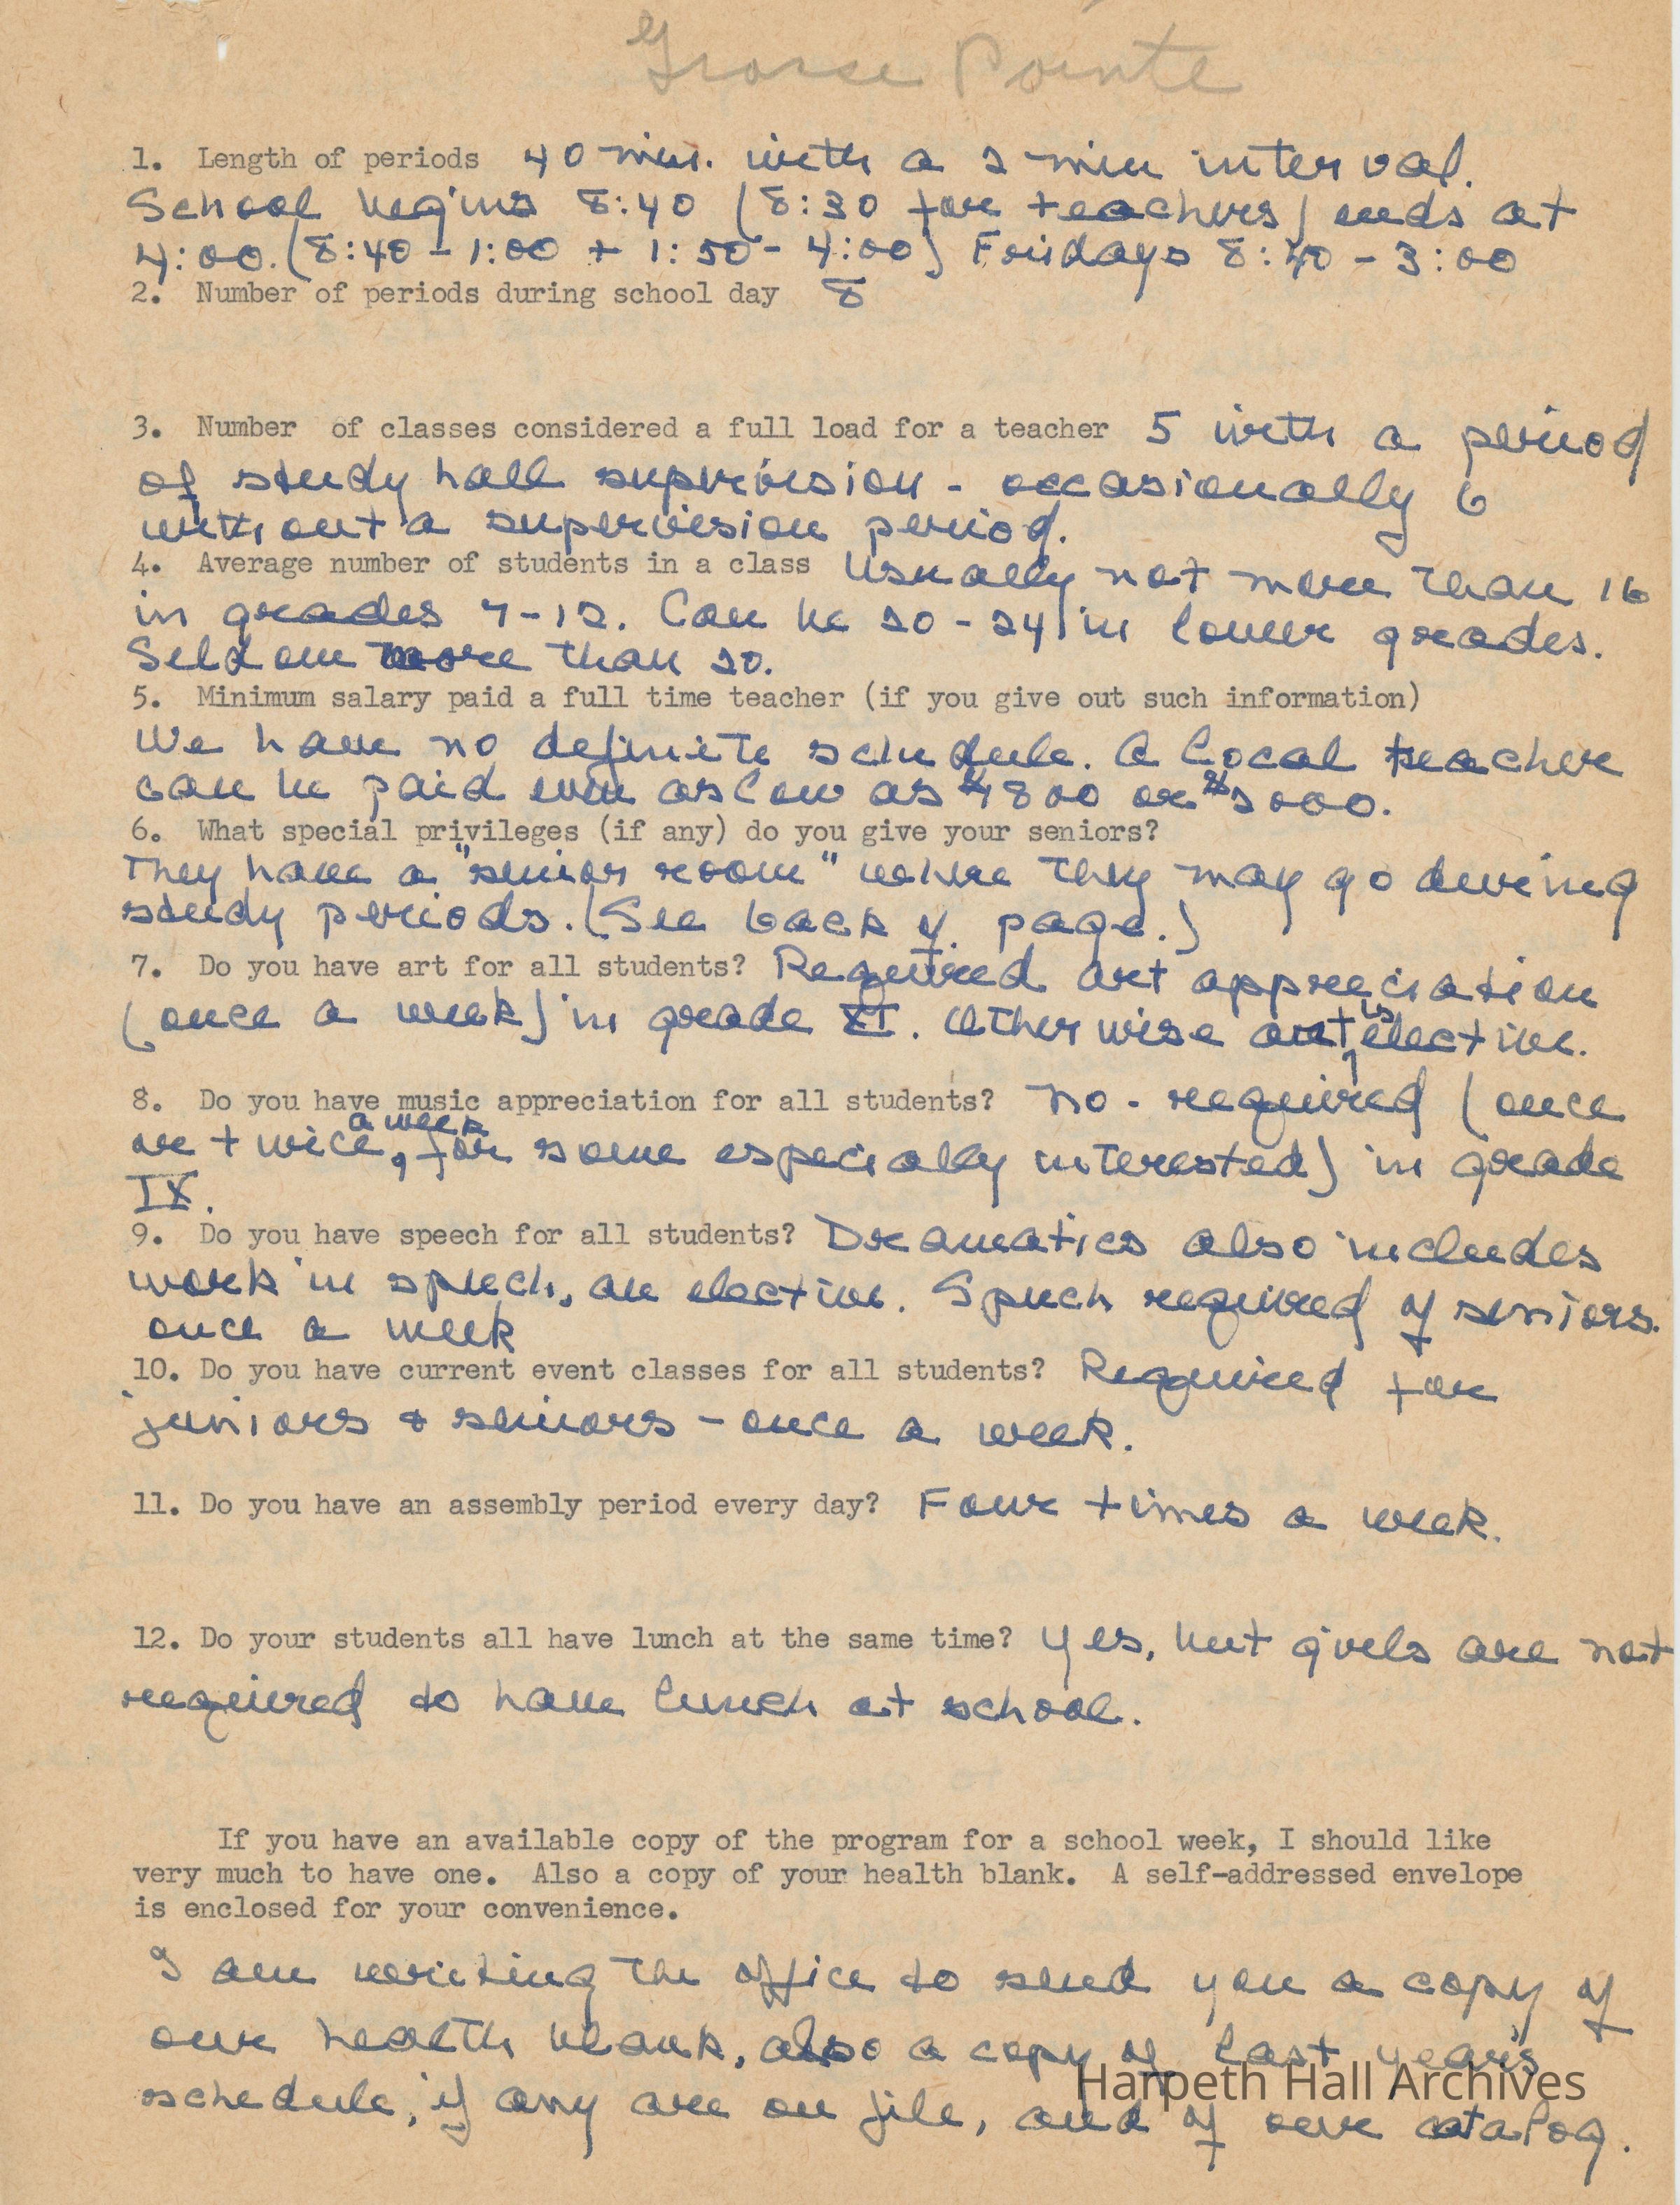 Grosse Pointe
1. Length of periods 40 min. with a 2 min interval.
School begins 8:40 (8:30 for teachers) ends at
4:00. (8:40 - 1:00 + 1:50 - 4:00) Fridays 8:40 - 3:00
2. Number of periods during school day 8
3. Number of classes considered a full load for a teacher 5 with a period
of study hall supervision - occasionally 6
without a supervision period.
4. Average number of students in a class Usually not more than 16
in grades 7-12. Can be 20-24 in lower grades.
Seldom more than 20.
5. Minimum salary paid a full time teacher (if you give out such information)
We have no definite schedule. A local teacher
can be paid even as low as $4800 or $5000.
6. What special privileges (if any) do you give your seniors?
They have a "senior room" where they may go during
study periods. (See back of page.)
7. Do you have art for all students? Required art appreciation
(once a week) in grade XI. Otherwise art is elective.
8. Do you have music appreciation for all students? No - required (once
or twice a week, for some especially interested) in grade
IX.
9. Do you have speech for all students? Dramatics also includes
work in speech, an elective. Speech required of seniors.
once a week
10. Do you have current event classes for all students? Required for
juniors & seniors - once a week.
11. Do you have an assembly period every day? Four times a week.
12. Do your students all have lunch at the same time? Yes, but girls are not
required to have lunch at school.
If you have an available copy of the program for a school week, I should like
very much to have one. Also a copy of your health blank. A self-addressed envelope
is enclosed for your convenience.
I am writing the office to send you a copy of
our health blank, also a copy of last year's
schedule, if any are on file, and of our catalog.
Harpeth Hall Archives